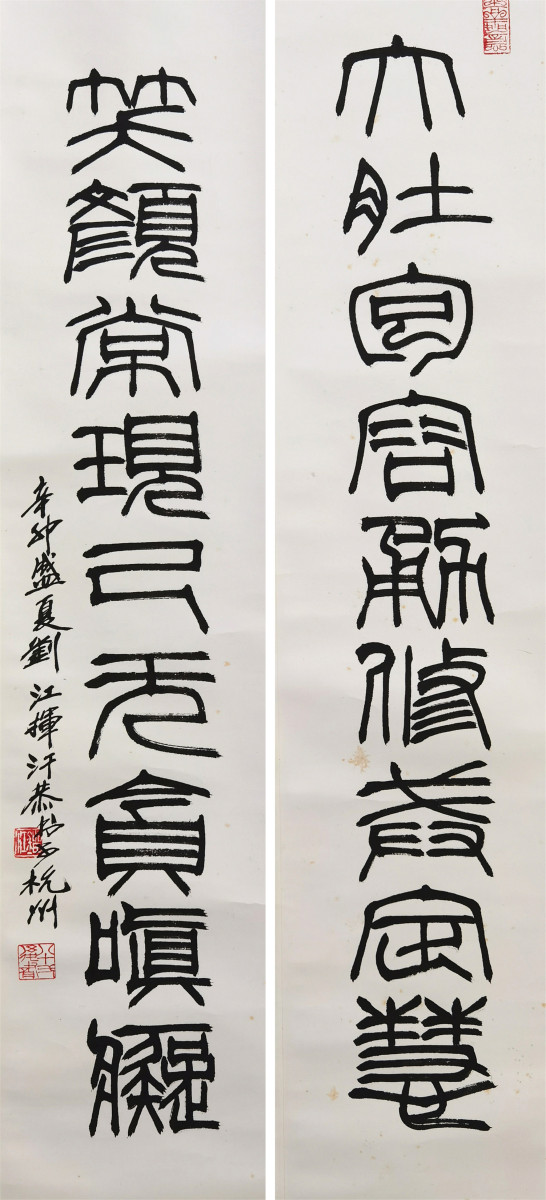 大肚包容解修戒定慧
笑顏常現已无貪嗔癡
辛卯盛夏劉江揮汗恭書于杭州